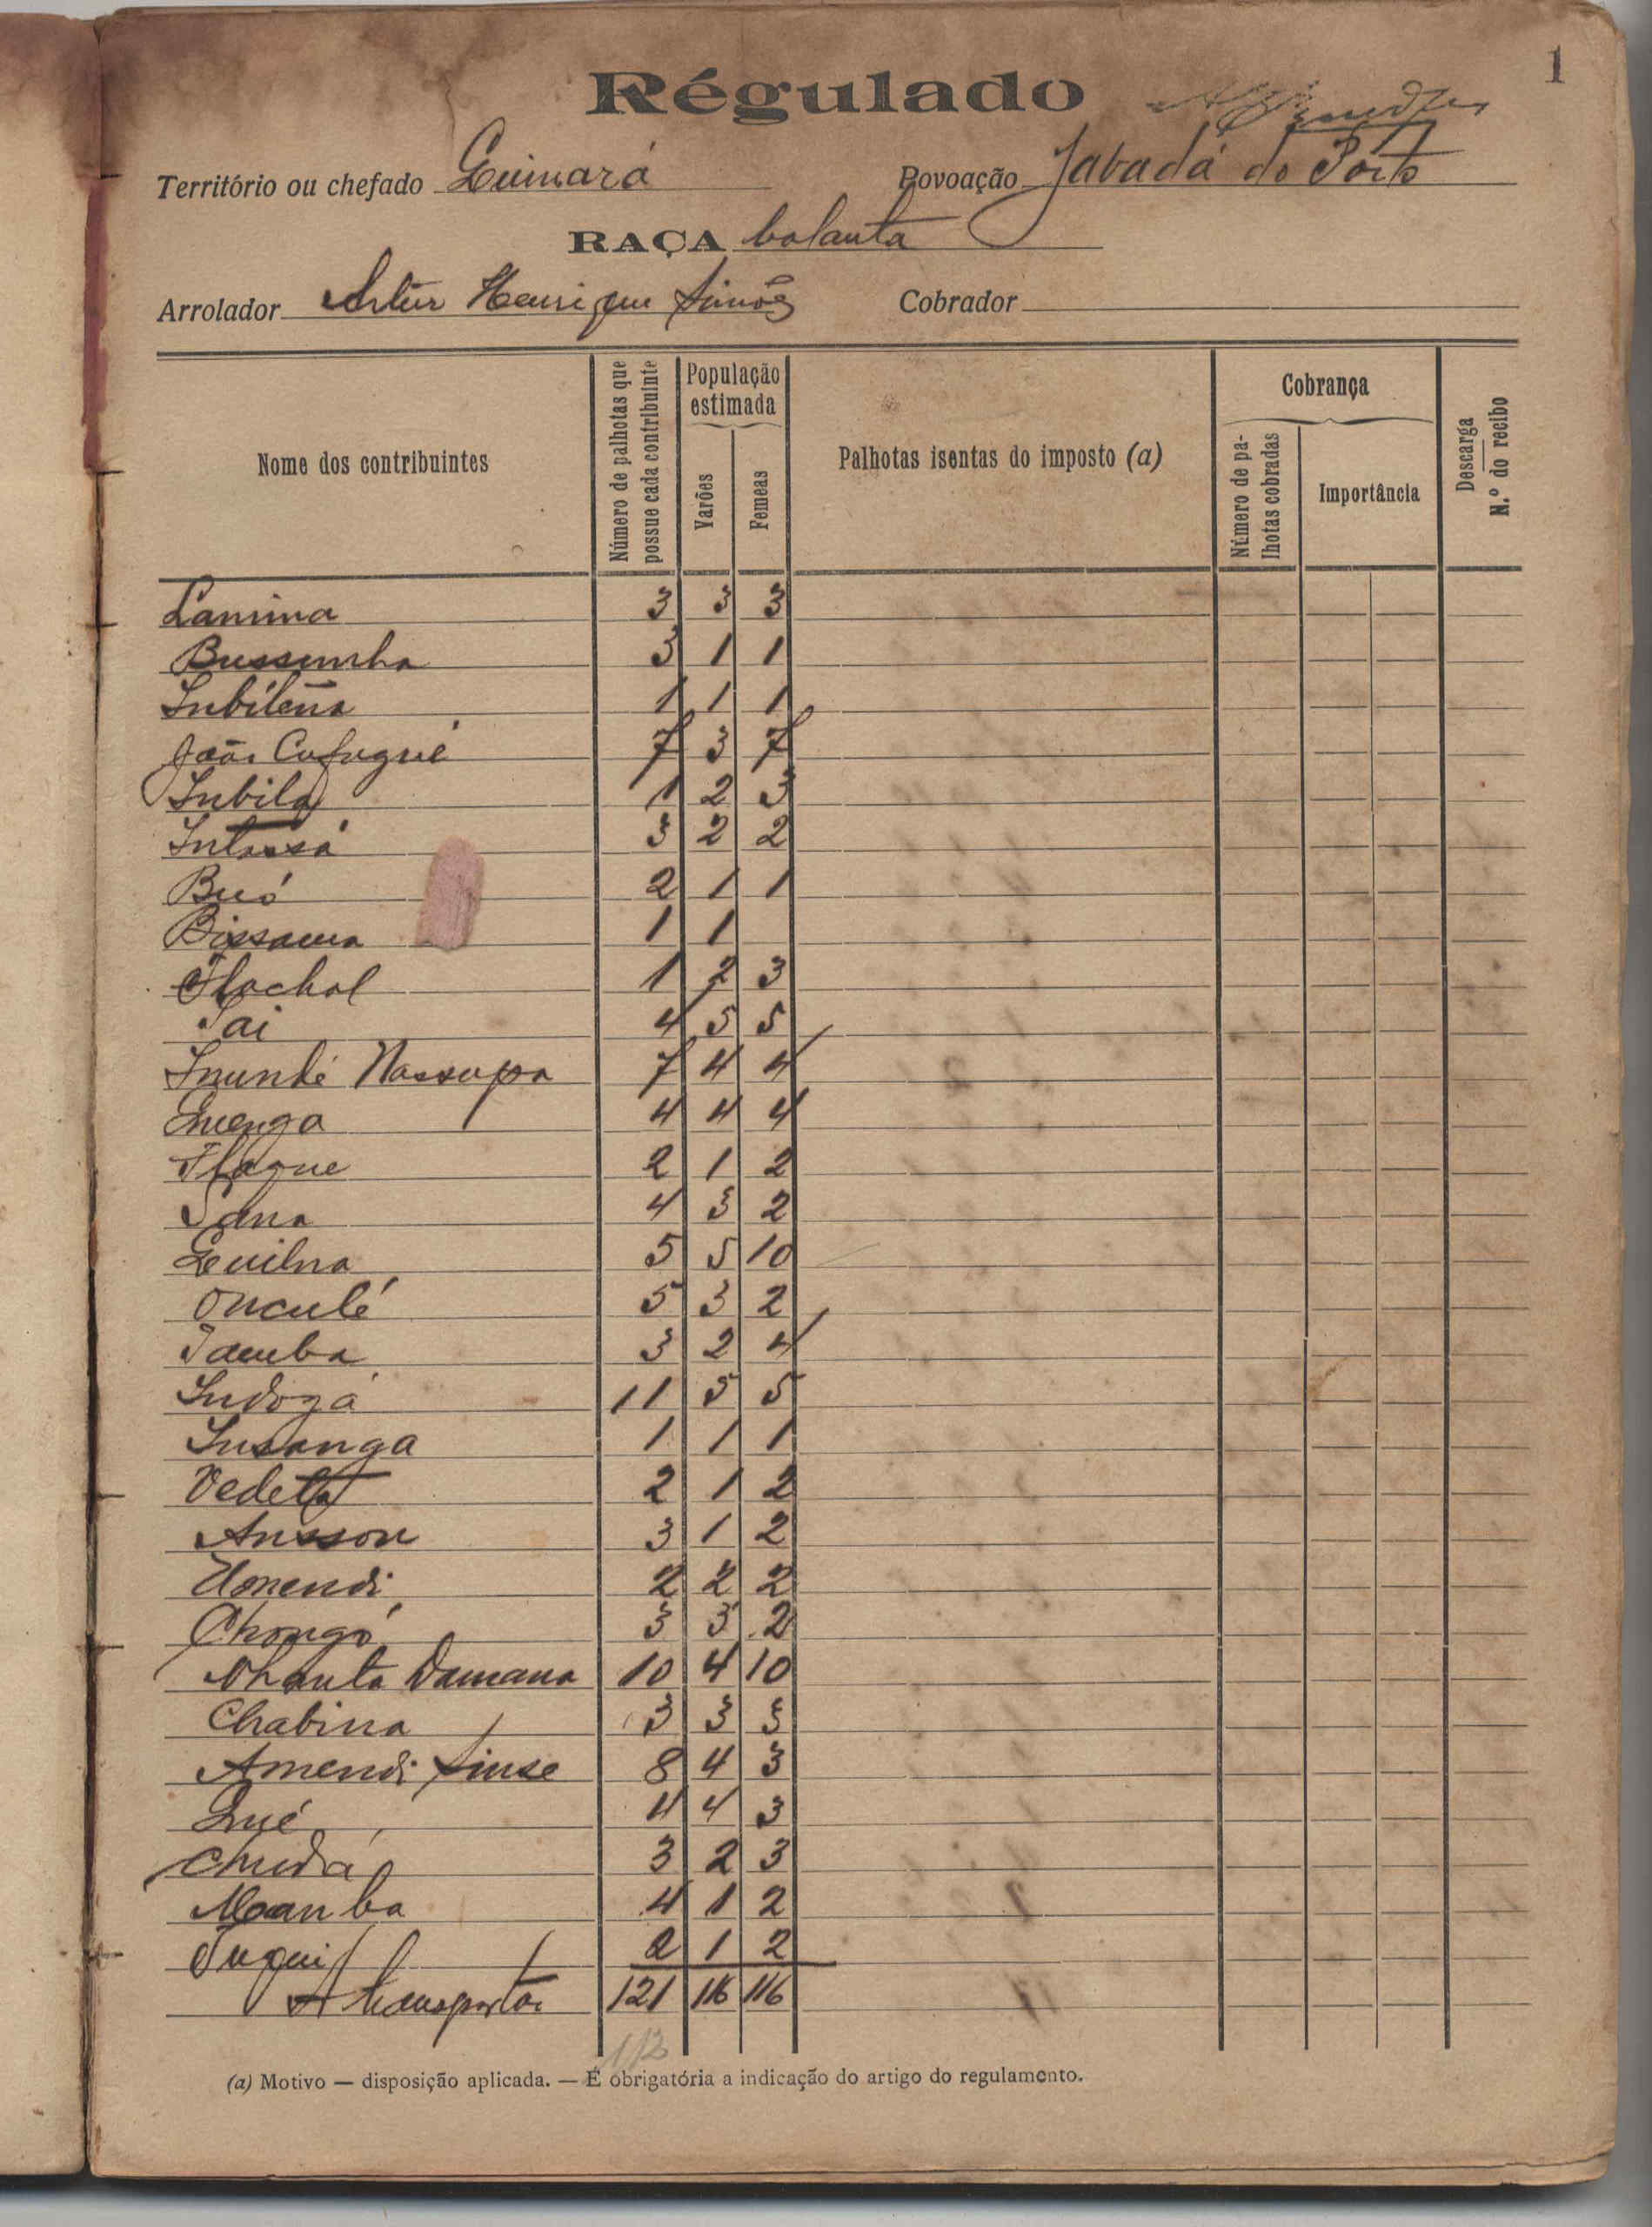 1
Régulado
Território ou chefado Guinará Povoação Jabadá do Porto
RAÇA balanta
Arrolador Artur Henrique Simões Cobrador
Nome dos contribuintes
Número de palhotas que possue cada contribuinte
População estimada
Varões
Femeas
Palhotas isentas do imposto (a)
Cobrança
Número de palhotas cobradas
Importância
Descarga
N.º do recibo
Lamina 3 3 3
Bussumha 3 1 1
1 1 1
João Cufugué 7 3 7
Inbila 1 2 3
Intassá 3 2 2
Bué 2 1 1
Bissaura 1 1
1 2 3
Tai 4 5 5
Inundé Nassupa 7 4 4
4 4 4
Flaque 2 1 2
Sana 4 3 2
Guilna 5 5 10
Onculé 5 3 2
Tamba 3 2 4
Indozá 11 5 5
Insanga 1 1 1
Vedeta 2 1 2
Ansson 3 1 2
2 2 2
Chongó 3 3 2
Nhanta Damana 10 4 10
Chabina 3 3 3
Amendi Sinse 8 4 3
4 4 3
3 2 3
Maamba 4 1 2
Tuqui 2 1 2
A transportar 121 116 116
(a) Motivo — disposição aplicada. — É obrigatória a indicação do artigo do regulamento.